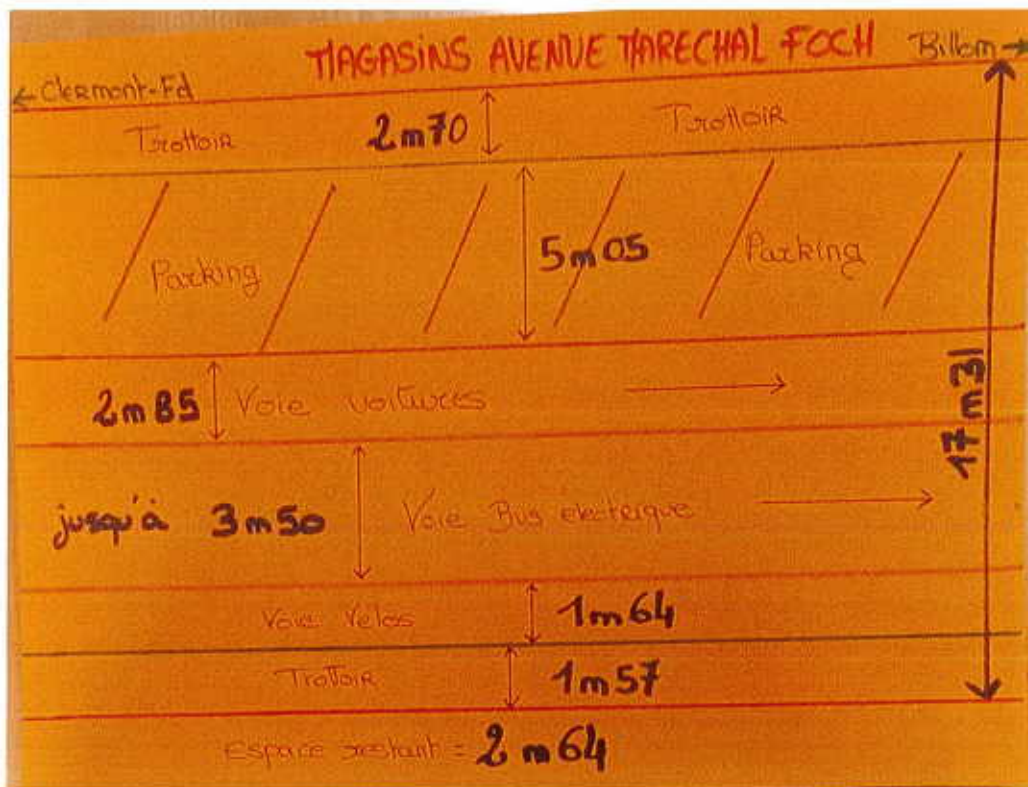 MAGASINS AVENUE MARECHAL FOCH
Billom →
← Clermont-Fd
Trottoir
2m70
Trottoir
Parking
5m05
Parking
2m85
Voie voitures
17m31
jusqu'à 3m50
Voie Bus électrique
Voie Vélos
1m64
Trottoir
1m57
Espace restant = 2m64